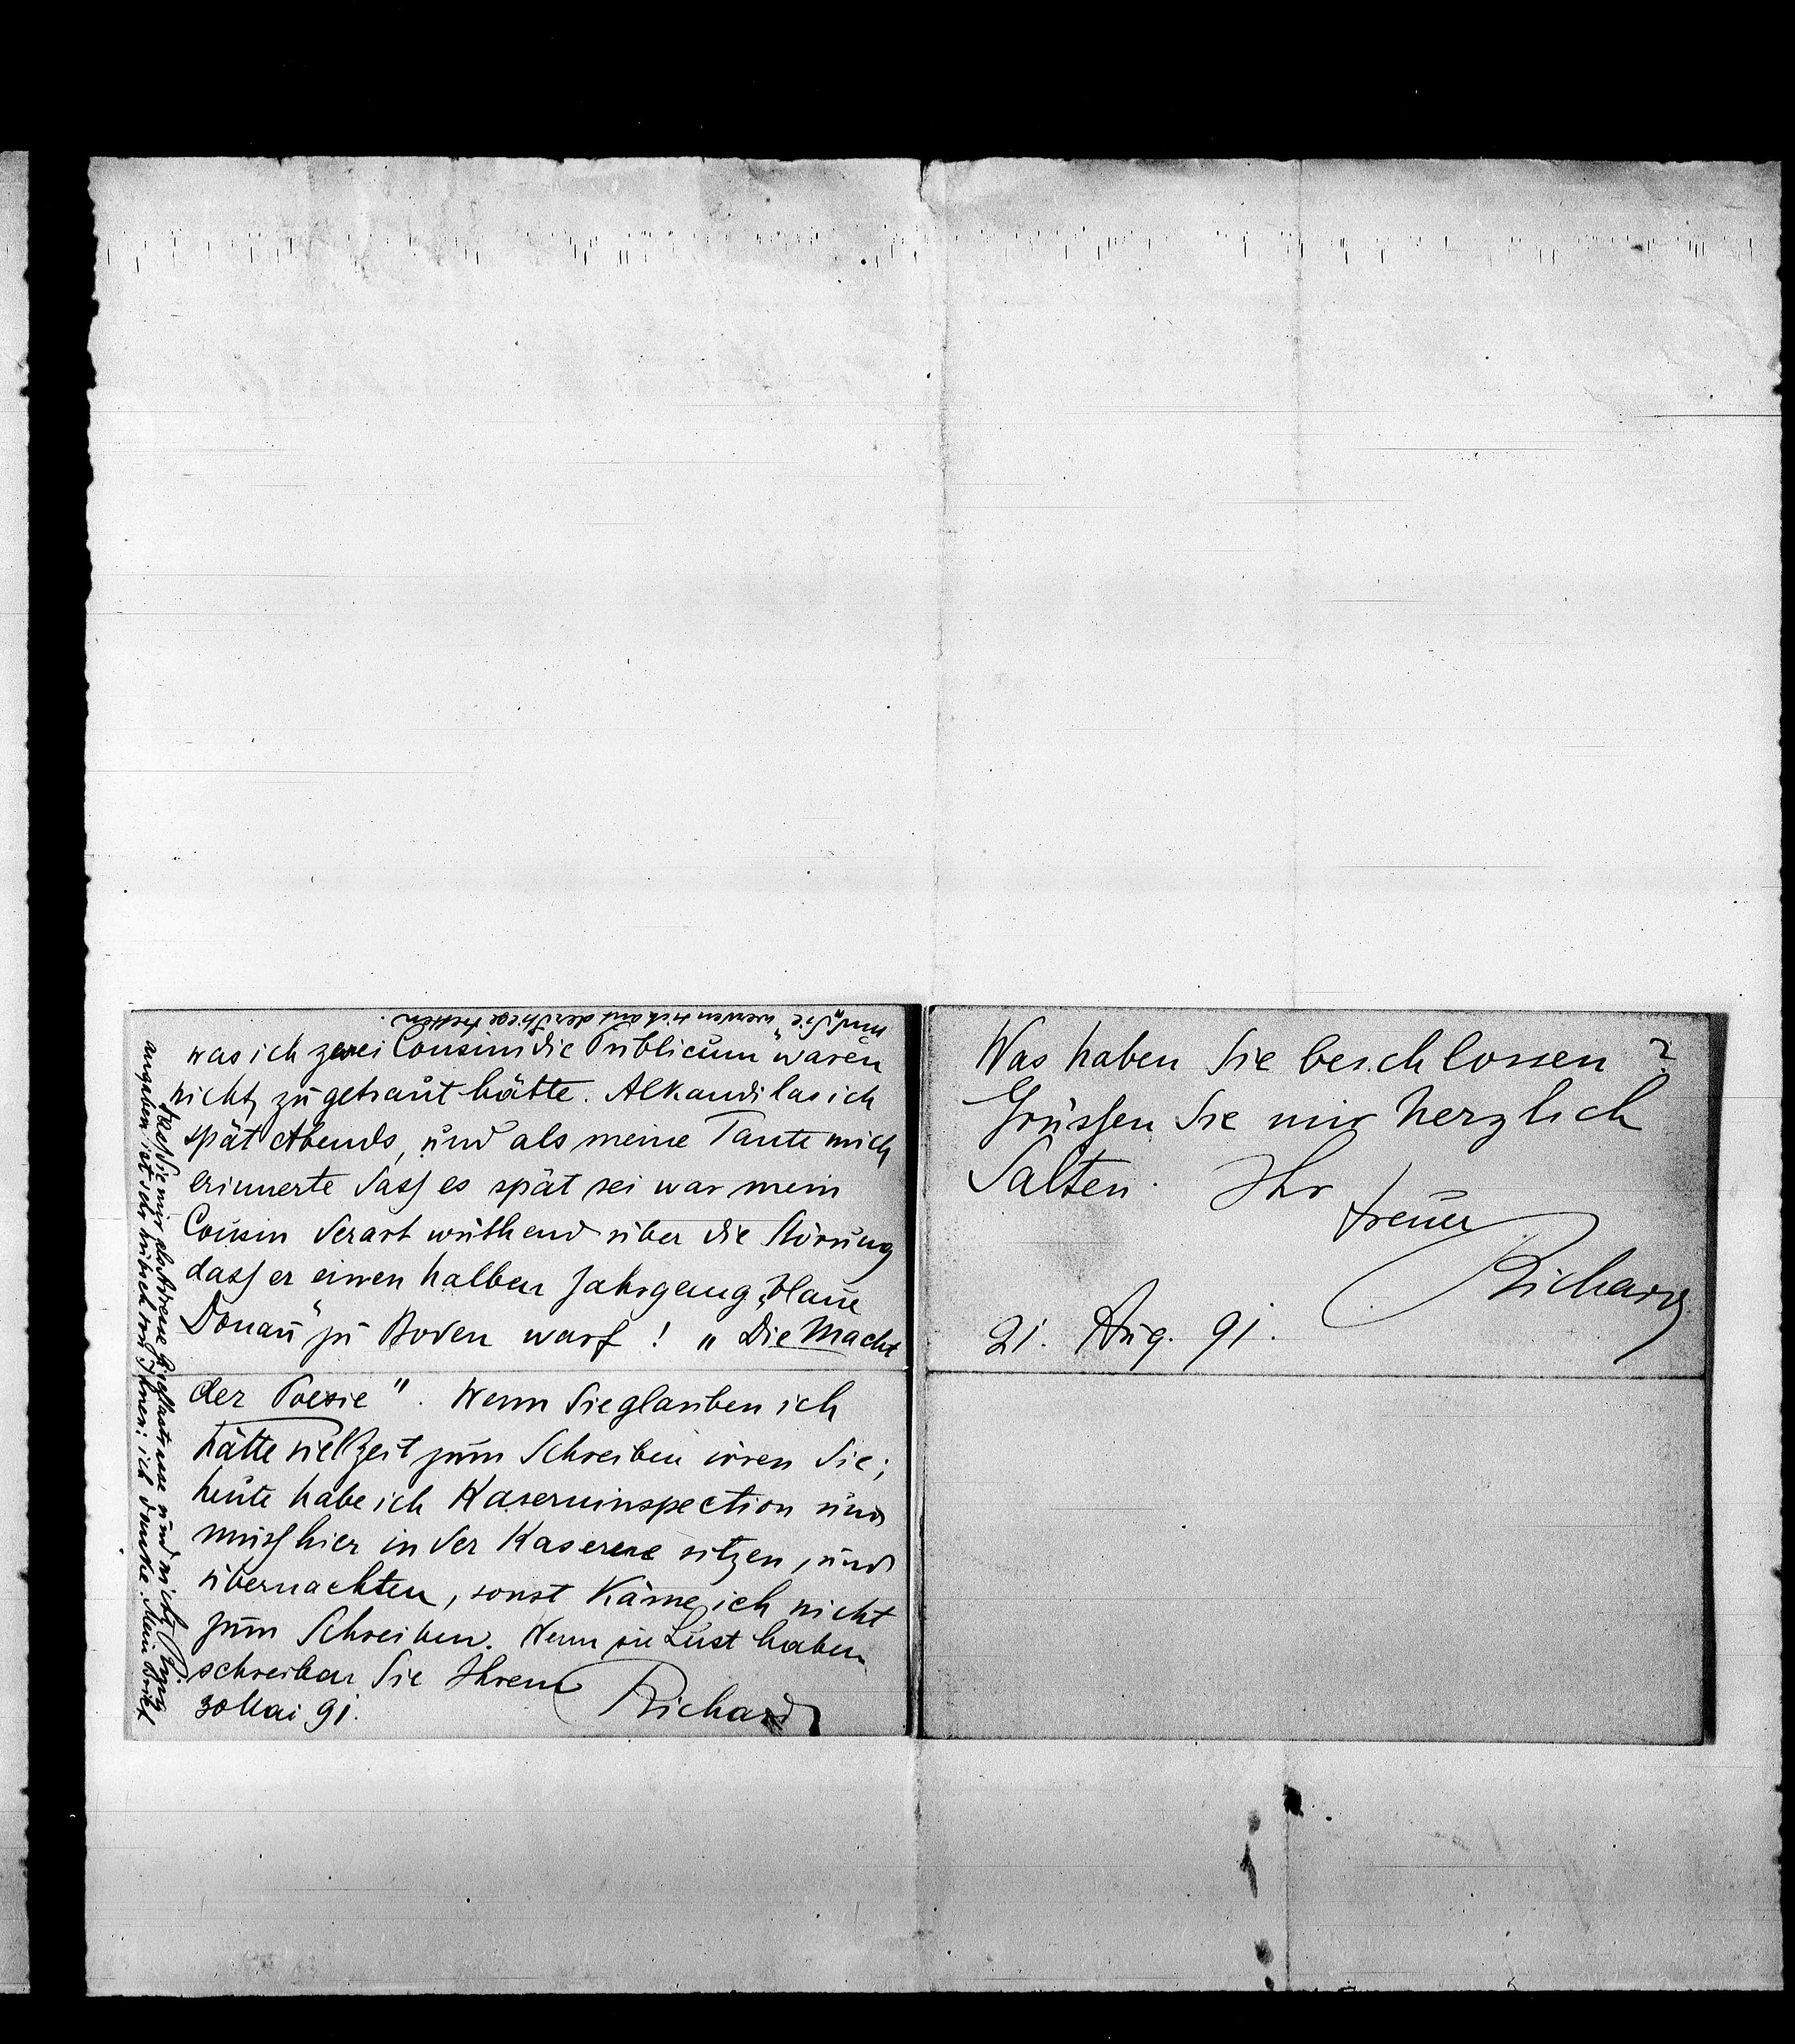 was ich zwei Cousins die „Publicum“ waren
nicht zugetraut hätte. Alkandi las ich
spät Abends, und als meine Tante mich
erinnerte dass es spät sei war mein
Cousin derart wüthend über die Störung
dass er einen halben Jahrgang „Blaue
Donau“ zu Boden warf! „Die Macht
der Poesie“. Wenn Sie glauben ich
hätte viel Zeit zum Schreiben irren Sie;
heute habe ich Kaserninspection und
muss hier in der Kaserne sitzen, und
übernachten, sonst käme ich nicht
zum Schreiben. Wenn sie Lust haben
schreiben Sie Ihrem
Richard
30 Mai 91.
Sie mir als Adresse und nicht
angaben ist sehr hübsch von Ihnen; ich danke. Mein Brief
und Sie „werden sich auf der Stiege treffen.
Was haben Sie beschlossen?
Grüssen Sie mir herzlich
Salten. Ihr
treuer
Richard
21. Aug. 91.